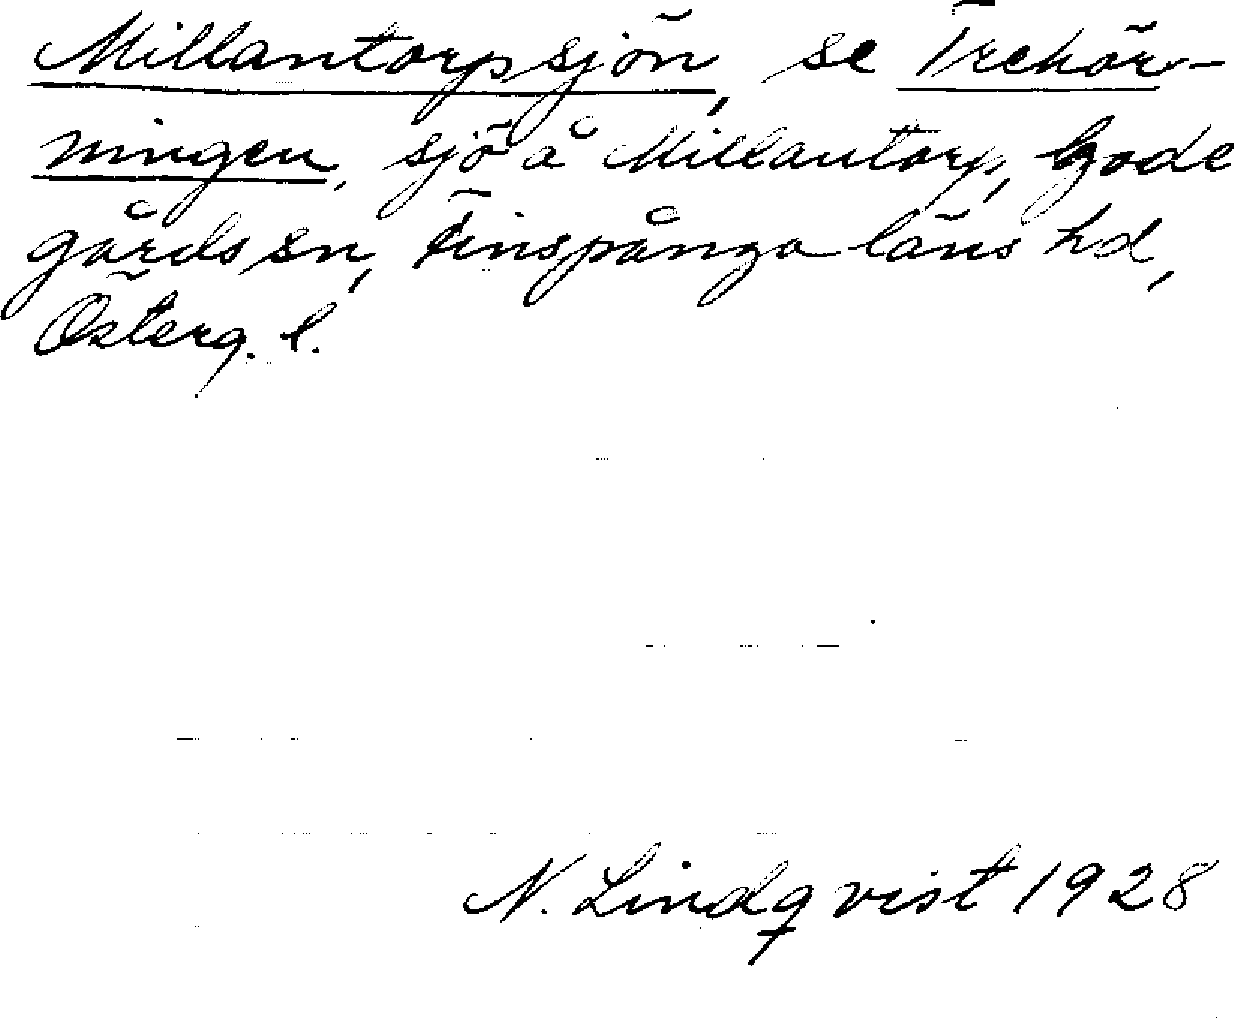 Millantorpsjön, se Trehör-
ningen, sjö å Millantorp, Gode
gårds sn, Finspånga läns hd,
Österg. l.
N. Lindqvist 1928